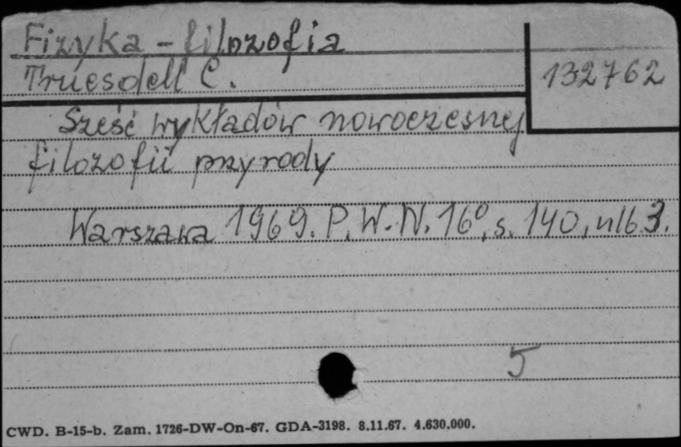 Fizyka - filozofia
Truesdell C.
132762
Sześć wykładów nowoczesnej
filozofii przyrody
Warszawa 1969. P.W.N. 16°, s. 140, nlb 3.
5
CWD. B-15-b. Zam. 1726-DW-On-67. GDA-3198. 8.11.67. 4.630.000.